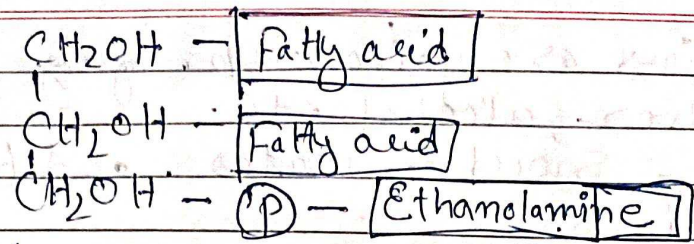 CH2OH - Fatty acid
CH2OH - Fatty acid
CH2OH - P - Ethanolamine